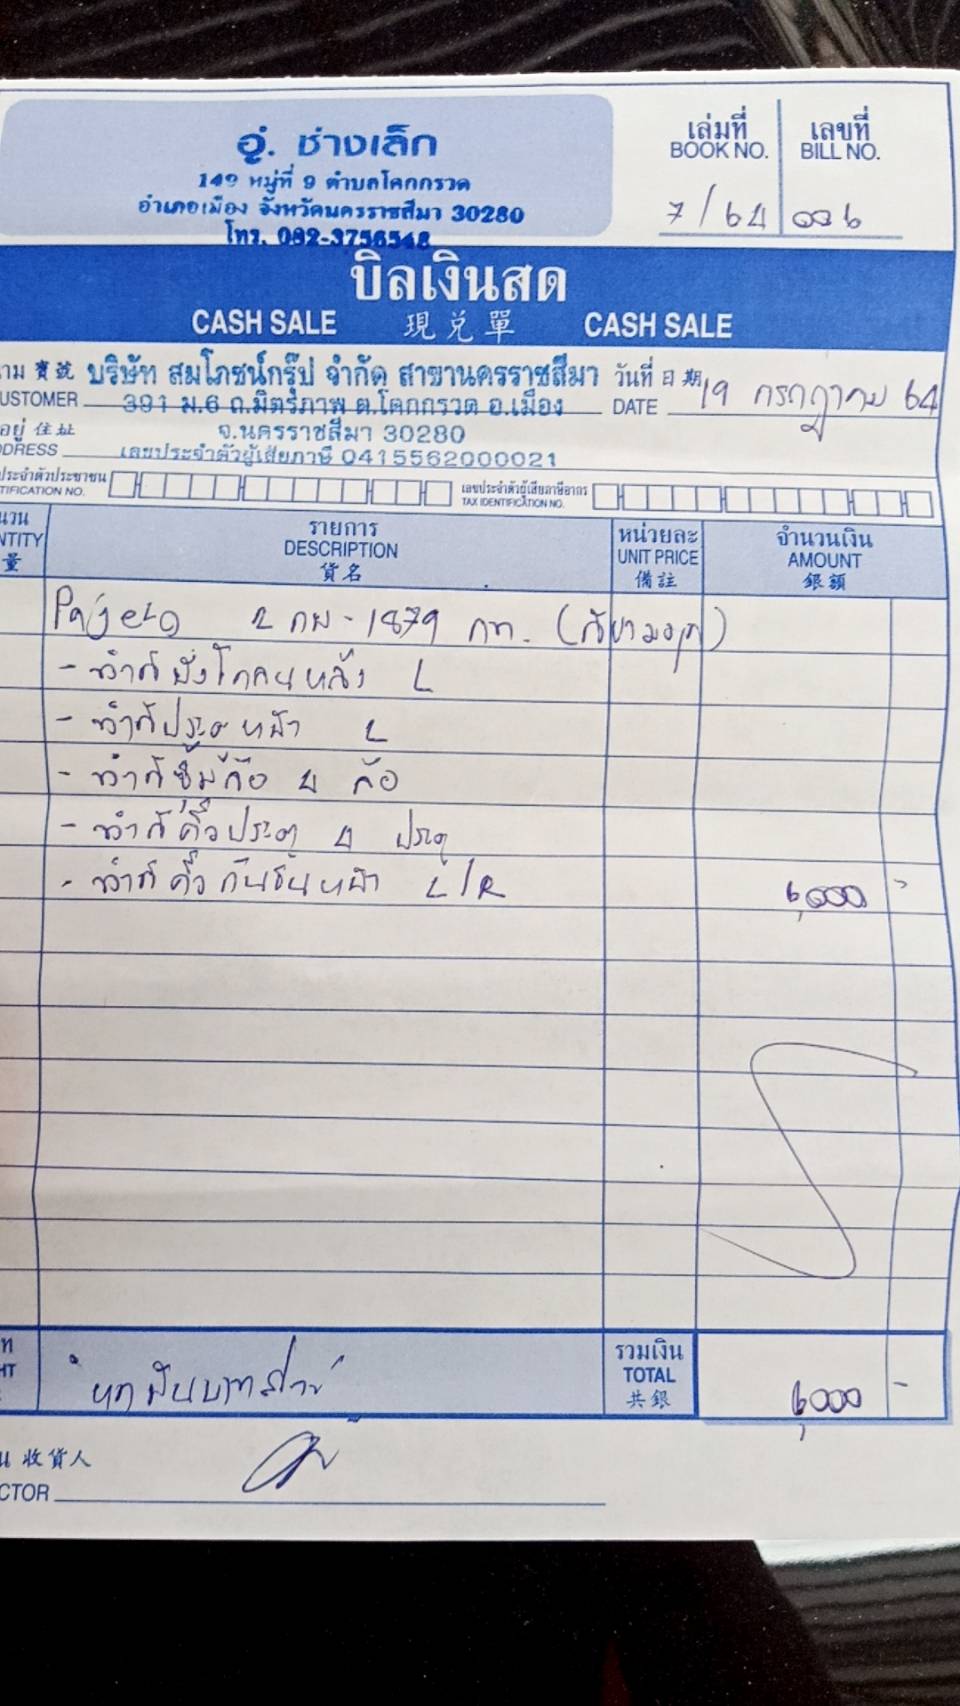 อู่. ช่างเล็ก
149 หมู่ที่ 9 ตำบลโคกกรวด
อำเภอเมือง จังหวัดนครราชสีมา 30280
โทร. 092-3756548
เล่มที่ เลขที่
BOOK NO. BILL NO.
7/64 006
บิลเงินสด
CASH SALE 現兑單 CASH SALE
าม 寶號 บริษัท สมโภชน์กรุ๊ป จำกัด สาขานครราชสีมา วันที่ 日期 19 กรกฎาคม 64
USTOMER 391 ม.6 ถ.มิตรภาพ ต.โคกกรวด อ.เมือง DATE
อยู่ 住址 จ.นครราชสีมา 30280
DRESS เลขประจำตัวผู้เสียภาษี 0415562000021
ประจำตัวประชาชน เลขประจำตัวผู้เสียภาษีอากร
TIFICATION NO. TAX IDENTIFICATION NO.
นวน รายการ หน่วยละ จำนวนเงิน
NTITY DESCRIPTION UNIT PRICE AMOUNT
量 貨名 備註 銀額
Pajero 2 กผ-1879 กท.
- ทำสีบังโคลนหลัง L
- ทำสีประตูหน้า L
- ทำสีซุ้มล้อ 4 ล้อ
- ทำสีคิ้วประตู 4 ประตู
- ทำสีคิ้วกันชนหน้า L/R 6,000 -
รวมเงิน
HT หกพันบาทถ้วน TOTAL 6,000 -
共銀
น 收貨人
CTOR